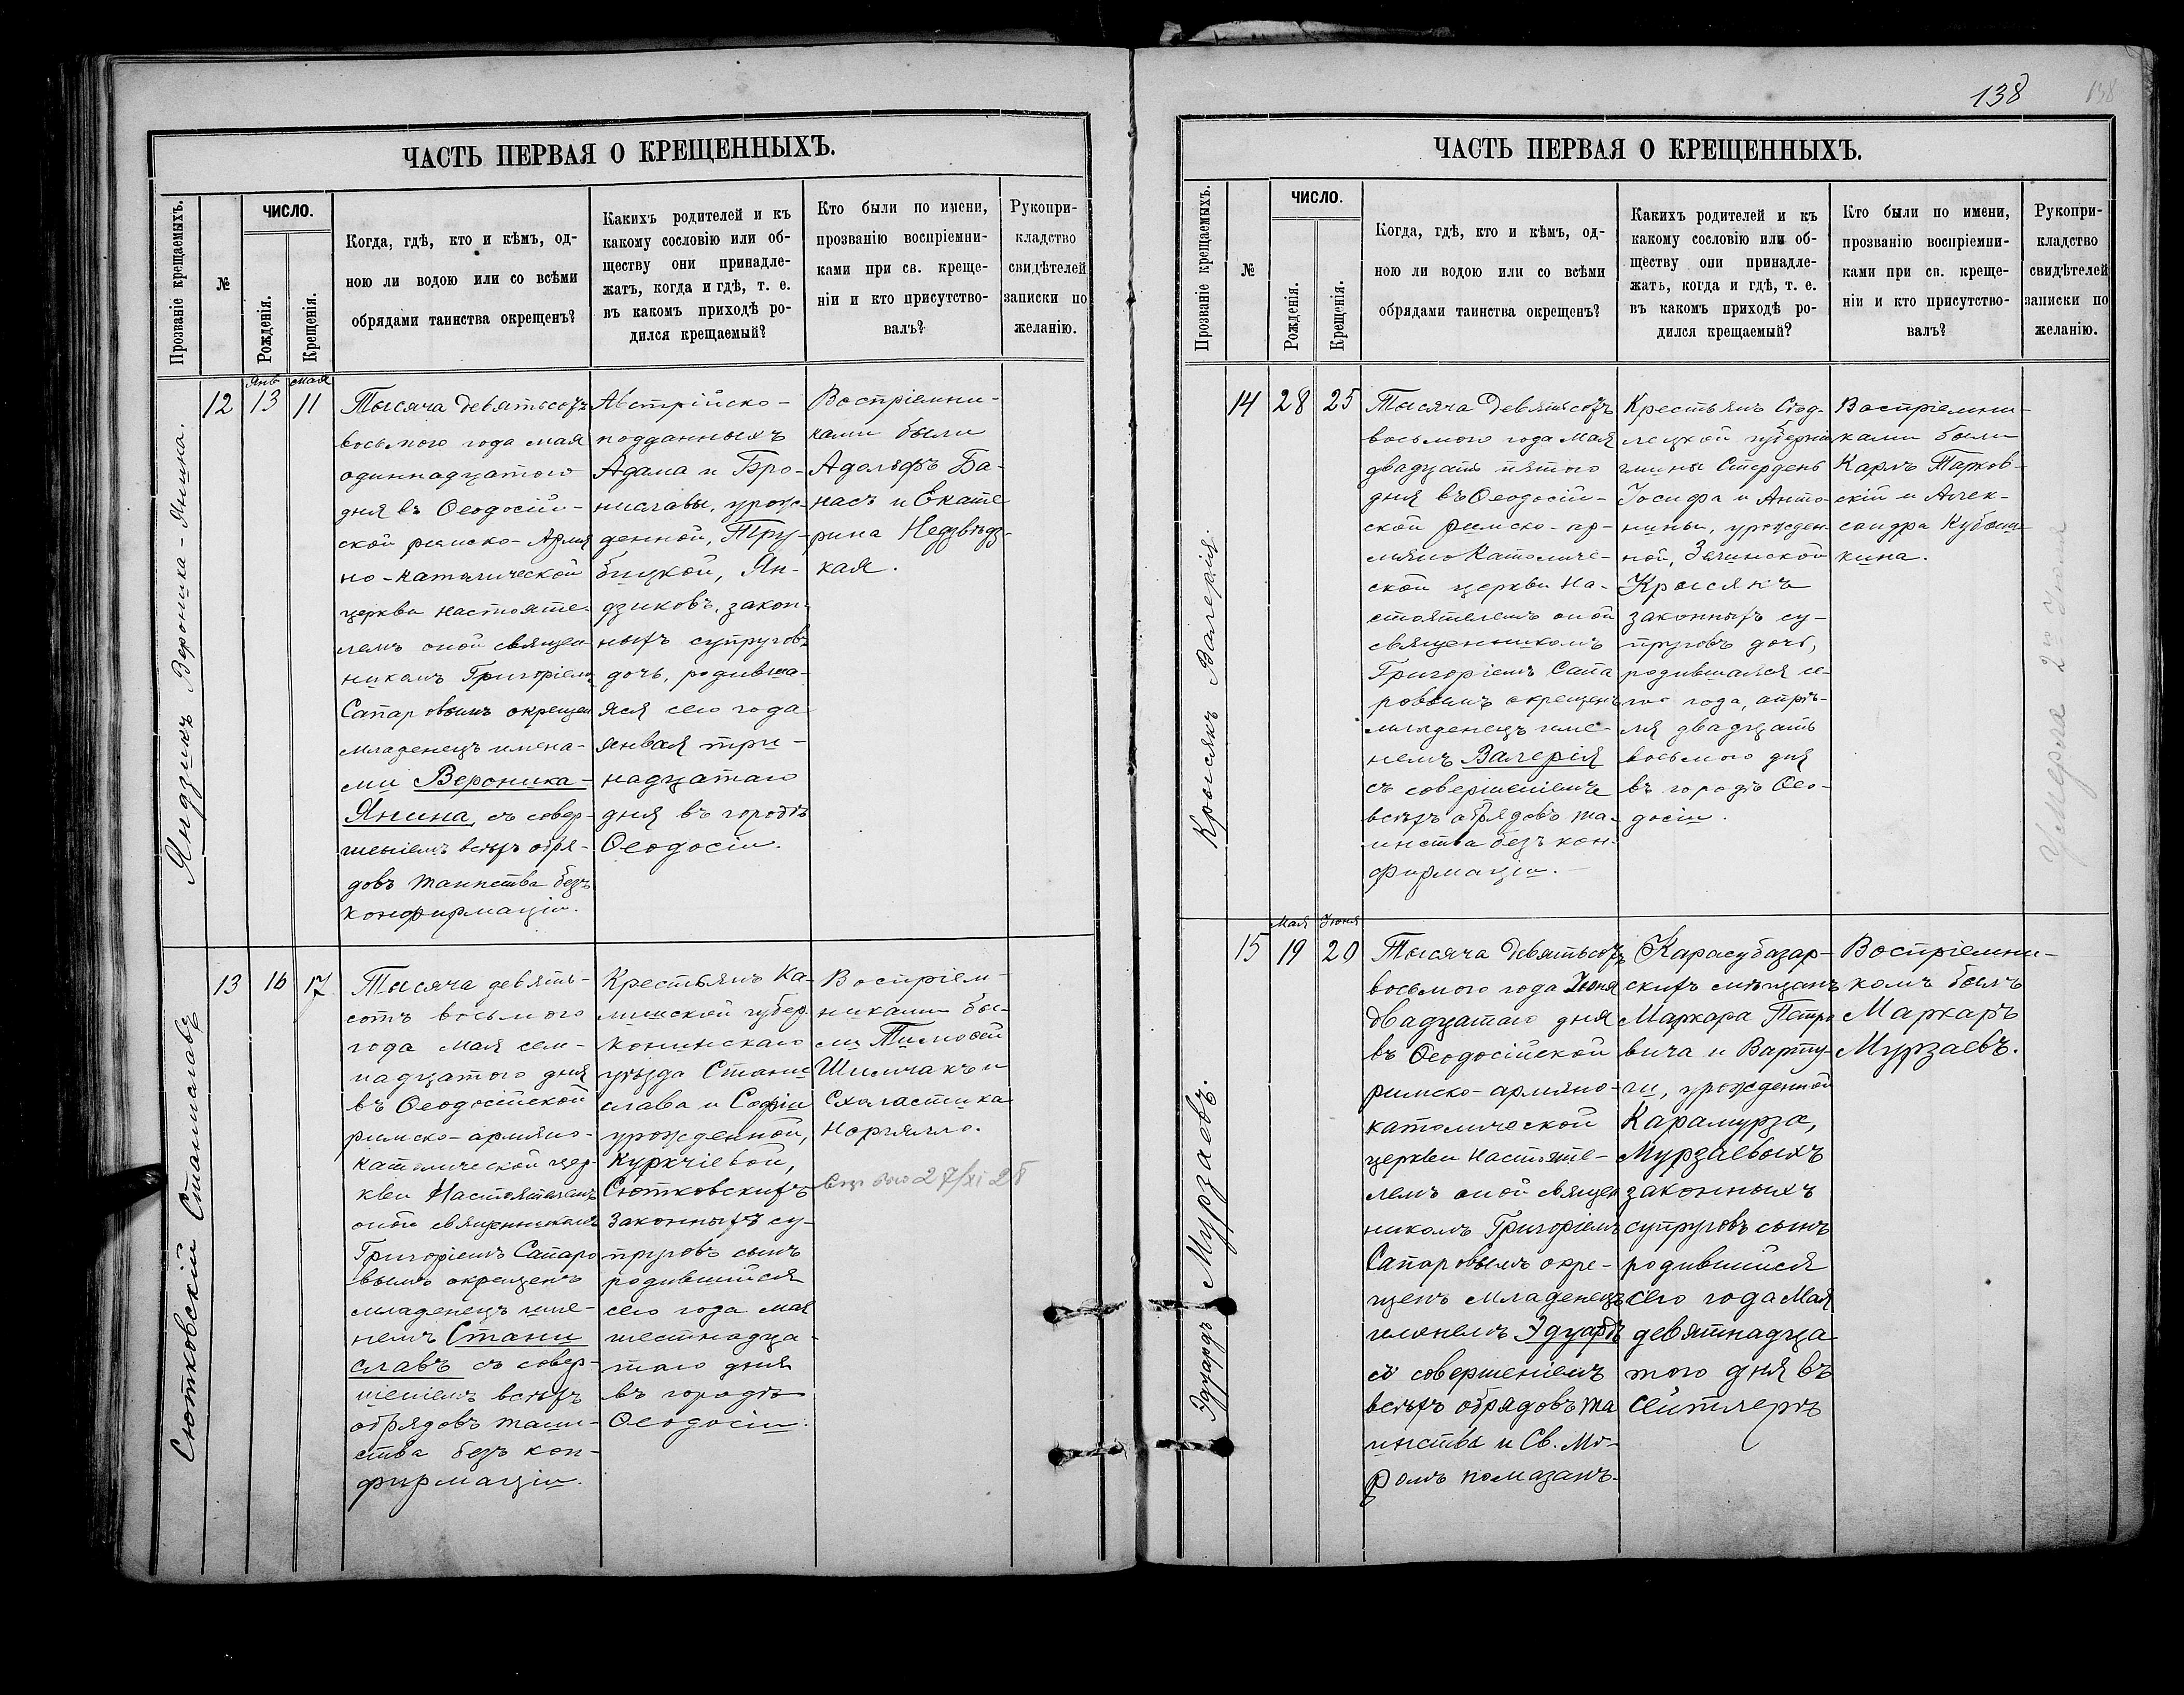 ЧАСТЬ ПЕРВАЯ О КРЕЩЕННЫХЪ.
Прозваніе крещаемыхъ.
№
ЧИСЛО.
Рожденія.
Крещенія.
Когда, гдѣ, кто и кѣмъ, од-
ною ли водою или со всѣми
обрядами таинства окрещенъ?
Какихъ родителей и къ
какому сословію или об-
ществу они принадле-
жатъ, когда и гдѣ, т. е.
въ какомъ приходѣ ро-
дился крещаемый?
Кто были по имени,
прозванію воспріемни-
ками при св. креще-
ніи и кто присутство-
валъ?
Рукопри-
кладство
свидѣтелей
записки по
желанію.
Яндзикъ Вероника-Янина.
12
Янв
13
мая
11
Тысяча девятьсотъ
восьмого года мая
одиннадцатого
дня въ Ѳеодосій-
ской римско-Армя
но-католической
церкви настояте-
лемъ оной священ
никомъ Григоріемъ
Сапаровымъ окрещен
младенецъ имена-
ми Вероника-
Янина, съ совер-
шеніемъ всѣхъ обря-
довъ таинства безъ
конфирмаціи.
Австрійско-
подданныхъ
Адама и Бро-
ниславы, урож-
денной, Тру-
бицкой, Ян-
дзиковъ, закон-
ныхъ супруговъ
дочь, родивша-
яся сего года
января три-
надцатаго
дня въ городѣ
Ѳеодосіи.
Воспріемни-
ками были
Адольфъ Ба-
насъ и Екате
рина Недзвѣдз-
кая.
Сютковскій Станиславъ
13
16
17
Тысяча девять-
сотъ восьмого
года мая сем-
надцатого дня
въ Ѳеодосійской
римско-армяно-
католической цер-
кви Настоятелемъ
оной священникомъ
Григоріемъ Сапаро
вымъ окрещенъ
младенецъ име-
немъ Стани
славъ съ совер-
шеніемъ всѣхъ
обрядовъ таин-
ства безъ кон-
фирмаціи.
Крестьянъ Ка-
лишской губер.
Конинскаго
уѣзда Стани
слава и Софіи
урожденной,
Куркчіевой,
Сютковскихъ
законныхъ су-
пруговъ сынъ
родившійся
сего года мая
шестнадца-
таго дня
въ городѣ
Ѳеодосіи.
Воспріем-
никами бы-
ли Тимофей
Шимчакъ и
Схоластика
27/XI 28
138
138
ЧАСТЬ ПЕРВАЯ О КРЕЩЕННЫХЪ.
Прозваніе крещаемыхъ.
№
ЧИСЛО.
Рожденія.
Крещенія.
Когда, гдѣ, кто и кѣмъ, од-
ною ли водою или со всѣми
обрядами таинства окрещенъ?
Какихъ родителей и къ
какому сословію или об-
ществу они принадле-
жатъ, когда и гдѣ, т. е.
въ какомъ приходѣ ро-
дился крещаемый?
Кто были по имени,
прозванію воспріемни-
ками при св. креще-
ніи и кто присутство-
валъ?
Рукопри-
кладство
свидѣтелей
записки по
желанію.
Крысякъ Валерія.
14
28
25
Тысяча Девятьсотъ
восьмого года Мая
двадцать пятого
дня въ Ѳеодосій-
ской римско-ар-
мяно Католиче-
ской церкви На-
стоятелемъ оной
священникомъ
Григоріемъ Сапа
ровымъ окрещенъ
младенецъ име-
немъ Валерія
съ совершеніемъ
всѣхъ обрядовъ та-
инства безъ кон-
фирмаціи.
Крестьянъ Сѣд-
лецкой губерніи
гмины Стердень
Іосифа и Анто-
нины, урожден-
ной, Зелинской
Крысякъ
законныхъ су-
пруговъ дочь,
родившаяся се-
го года, апрѣ-
ля двадцать
восьмого дня
въ городѣ Ѳео-
досіи.
Воспріемни-
ками были
Карлъ Тарков-
скій и Алек-
сандра Кубыш-
кина.
Умерла 2го Іюля
Эдуардъ Мурзаевъ.
15
Мая
19
Іюня
20
Тысяча девятьсотъ
восьмого года Іюня
двадцатаго дня
въ Ѳеодосійской
римско-армяно-
католической
церкви Настояте-
лемъ оной священ
никомъ Григоріемъ
Сапаровымъ окре-
щенъ младенецъ
именемъ Эдуардъ
съ совершеніемъ
всѣхъ обрядовъ та
инства и Св. Мѵ-
ромъ помазанъ.
Карасубазар-
скихъ мѣщанъ
Маркара Петро
вича и Варту-
ги, урожденной
Карамурза,
Мурзаевыхъ
законныхъ
супруговъ сынъ
родившійся
сего года Мая
девятнадца
того дня въ
Сейтлерѣ
Воспріемни-
комъ былъ
Маркаръ
Мурзаевъ.